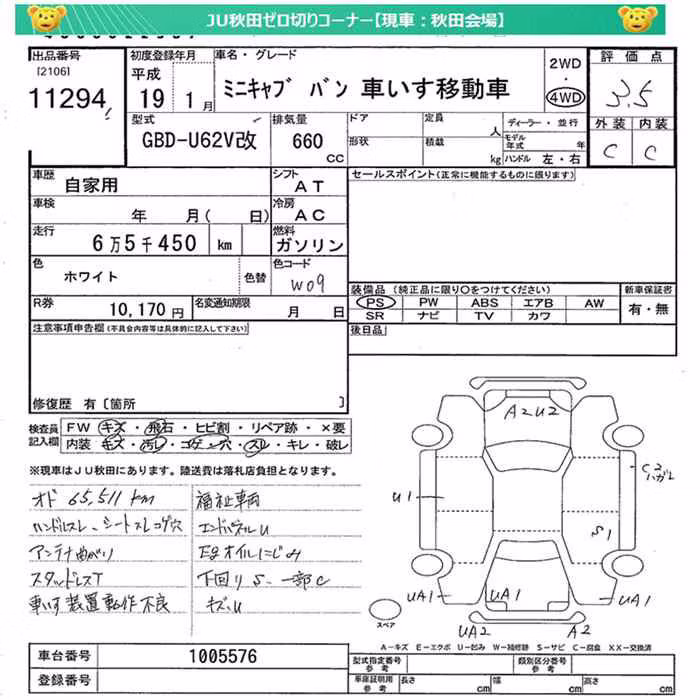 JU秋田ゼロ切りコーナー【現車：秋田会場】
出品番号
[2106]
11294
初度登録年月
平成
19 1月
車名・グレード
ミニキャブ バン 車いす移動車
2WD
・
4WD
評価点
3.5
外装 内装
C C
型式
GBD-U62V改
排気量
660
CC
ドア
形状
定員
人
積載
kg
ディーラー・並行
モデル年式 年
ハンドル 左・右
車歴
自家用
シフト
AT
車検
年 月( 日)
冷房
AC
走行
6万5千450 km
燃料
ガソリン
色
ホワイト
色替
色コード
W09
R券
10,170円
名変通知期限
月 日
セールスポイント(正常に機能するものに限ります)
装備品 (純正品に限り○をつけてください)
PS PW ABS エアB AW
SR ナビ TV カワ
新車保証書
有・無
後日品
注意事項申告欄(不具合内容等は具体的に記入して下さい)
修復歴 有 [箇所 ]
検査員記入欄
FW キズ・飛石・ヒビ割・リペア跡・×要
内装 キズ・汚レ・コゲ穴・スレ・キレ・破レ
※現車はJU秋田にあります。陸送費は落札店負担となります。
オド 65,511km
ハンドルスレ、シートスレコゲ穴
アンテナ曲がり
スタッドレスT
車いす装置動作不良
福祉車両
エンドパネルU
E/gオイルにじみ
下回りS、一部C
キズ、U
A2U2
U1
C2
ハガレ
S1
UA1
UA1
UA1
UA2
A2
スペア
A－キズ E－エクボ U－凹み W－補修跡 S－サビ C－腐食 XX－交換済
車台番号
1005576
登録番号
型式指定番号
参考
類別区分番号
参考
車庫証明用
参考
長さ cm 幅 cm 高さ cm